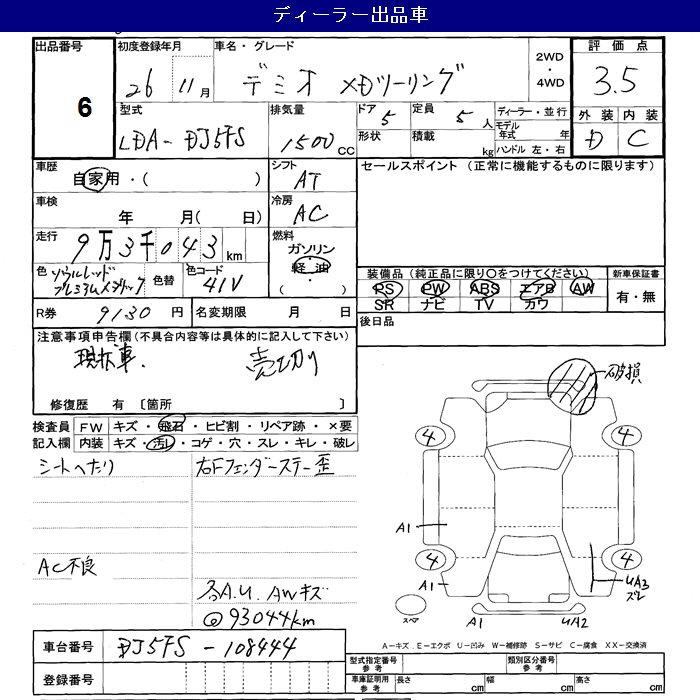 ディーラー出品車
出品番号
6
初度登録年月
26 11月
車名・グレード
デミオ XDツーリング
2WD
・
4WD
評価点
3.5
外装 内装
D C
型式
LDA-DJ5FS
排気量
1500cc
ドア
5
定員
5人
形状
積載
kg
ディーラー・並行
モデル年式 年
ハンドル 左・右
車歴
自家用・( )
シフト
AT
セールスポイント (正常に機能するものに限ります)
車検
年 月( 日)
冷房
AC
走行
9万3千043km
燃料
ガソリン
軽油
( )
色
ソウルレッドプレミアムメタリック
色替
色コード
41V
装備品 (純正品に限り○をつけてください)
新車保証書
PS PW ABS エアB AW
SR ナビ TV カワ
有・無
R券 9130円
名変期限 月 日
後日品
注意事項申告欄(不具合内容等は具体的に記入して下さい)
現状車. 売切り
修復歴 有 〔箇所 〕
検査員記入欄
FW キズ・飛石・ヒビ割・リペア跡・×要
内装 キズ・汚れ・コゲ・穴・スレ・キレ・破レ
シートへたり
右Fフェンダーステー歪
AC不良
A.U. AWキズ
@93044km
破損
4
4
4
4
A1
A1
UA3
ズレ
スペア
A1
UA2
A-キズ. E-エクボ U-凹み W-補修跡 S-サビ C-腐食 XX-交換済
車台番号
DJ5FS-108444
登録番号
型式指定番号
参考
類別区分番号
参考
車庫証明用
参考
長さ cm
幅 cm
高さ cm